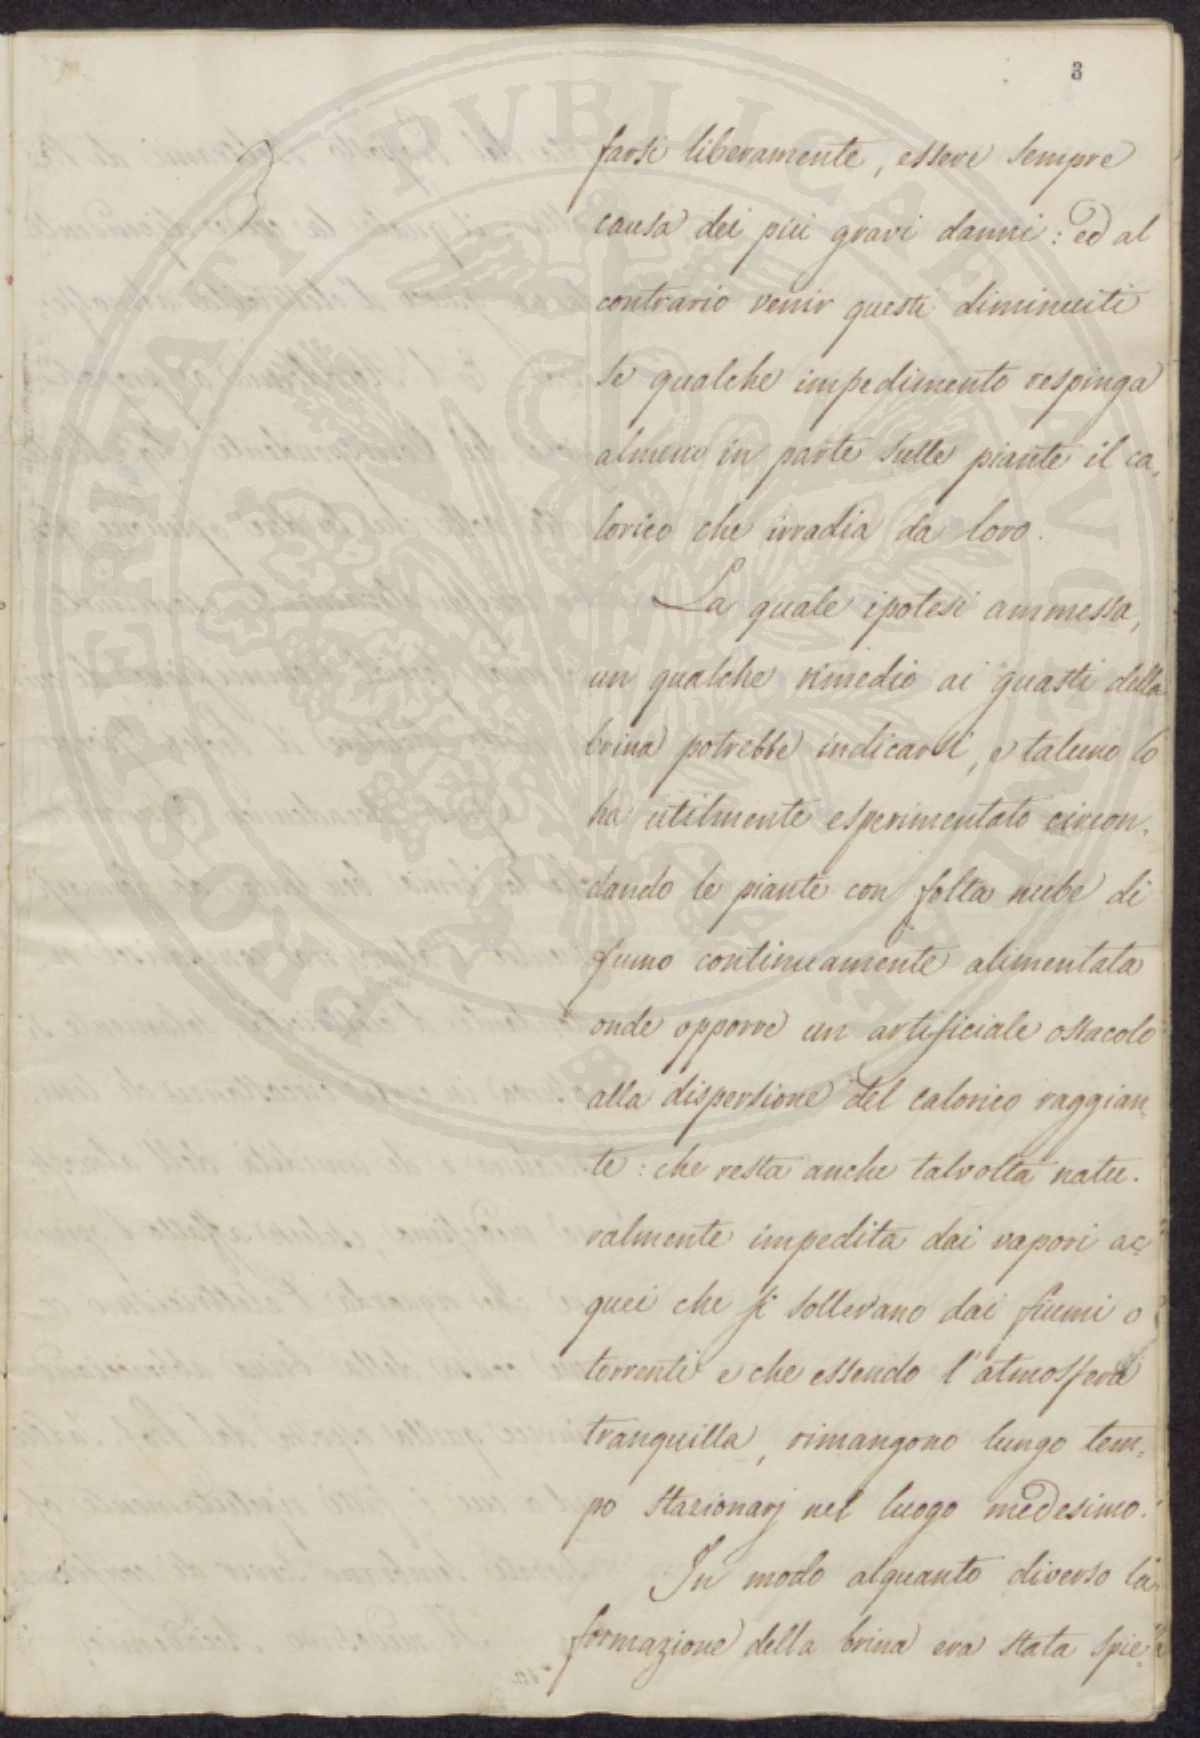 3
farsi liberamente, essere sempre
causa dei più gravi danni: ed al
contrario venir questi diminuiti
se qualche impedimento respinga
almeno in parte sulle piante il ca-
lorico che irradia da loro.
La quale ipotesi ammessa,
un qualche rimedio ai guasti della
brina potrebbe indicarsi, e taluno lo
ha utilmente esperimentato circon-
dando le piante con folta nube di
fumo continuamente alimentata
onde opporre un artificiale ostacolo
alla dispersione del calorico raggian-
te: che resta anche talvolta natu-
ralmente impedita dai vapori ac-
quei che si sollevano dai fiumi o
torrenti e che essendo l'atmosfera
tranquilla, rimangono lungo tem-
po stazionarj nel luogo medesimo.
In modo alquanto diverso la
formazione della brina era stata spie-
PROSPERITATI PVBLICAE AVGENDAE